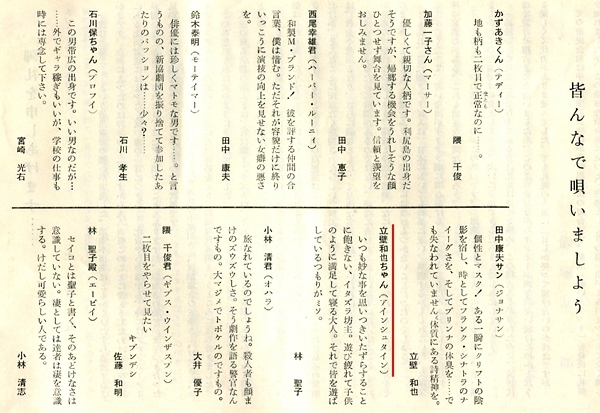 皆んなで唄いましょう
かずあきくん(テディー)
地も柄も二枚目で正常なのに……。
隈　千俊
加藤一子さん(マーサー)
優しくて親切な人柄です。利尻島の出身だ
そうですが、帰郷する機会をうれしそうな顔
ひとつせず舞台を見ています。信頼と羨望を
おしみません。
田中　恵子
西尾幸雄君(ハーパー・ルーニィ)
和製M・ブランド!　彼を評する仲間の合
言葉、僕は憎む。ただそれが容貌だけに終り
いっこうに演技の向上を見せない女癖の悪さ
を。
田中　康夫
鈴木泰明(モーテイマー)
俳優には珍しくマトモな男です……。と言
うものの、新協劇団を振り捨てて参加したあ
たりのパッションは……少々?……
石川　孝生
石川保ちゃん(ブロフイ)
この男帯広の出身です。いい男なのだが…
……外でギャラ稼ぎもいいが、学校の仕事も
時には専念して下さい。
宮崎　光石
田中康夫サン(ジョナサン)
個性とマスク!　ある一瞬にクリフトの陰
影を宿し、時としてフランク・シナトラのナ
イーグさを、そしてブリンナの体臭を……で
も失なわれていません。体質にある詩精神を。
立壁　和也
立壁和也ちゃん(アインシュタイン)
いつも妙な事を思いつきいたずらすること
に飽きない、イタズラ坊主。遊び疲れて子供
のように満足して寝る大人。それで皆を遊ば
しているつもりがミソ。
林　聖子
小林　清君(オハラ)
旅なれているのでしょうね。殺人者も顔ま
けのズウズウしさ。そう劇作を語る警官なん
ですもの。大マジメでトボケルのですもの。
大井　優子
隈　千俊君(ギブス・ウインザスプン)
二枚目をやらせて見たい
キブンデシ
佐藤　和明
林　聖子殿(エービイ)
セイコとは聖子と書く、そのあどけなさは
意識していない。凄としては達者は凄を意識
する。けだし可愛らしい人である。
小林　清志